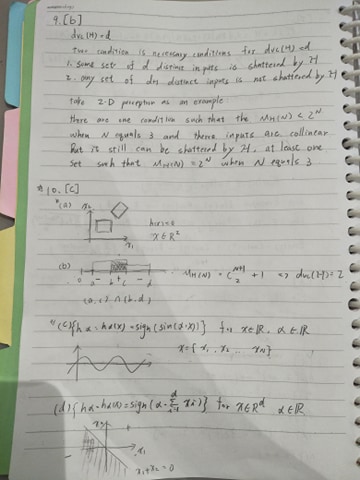 9. [b]
dvc(H) = d
two condition is necessary conditions for dvc(H) = d
1. some set of d distinct inputs is shattered by H
2. any set of d+1 distinct inputs is not shattered by H
take 2-D perceptron as an example
there are one condition such that the MH(N) < 2^N
when N equals 3 and these inputs are collinear
But it still can be shattered by H, at least one
set such that MH(N) = 2^N when N equals 3
*10. [c]
*(a) x2
h(x) = 
x ∈ R^2
x1
(b)
a b c d
MH(N) = C^{N+1}_2 + 1 => dvc(H) = 2
(a, c) ∩ (b, d)
(c) {hα : hα(x) = sign(sin(α·x))} for x ∈ R, α ∈ R
x = {x1, x2 ... xN}
(d) {hα = hα(x) = sign(α · Σ^d_{i=1} xi)} for x ∈ R^d α ∈ R
x2
+
x1
-
x1+x2 = 0